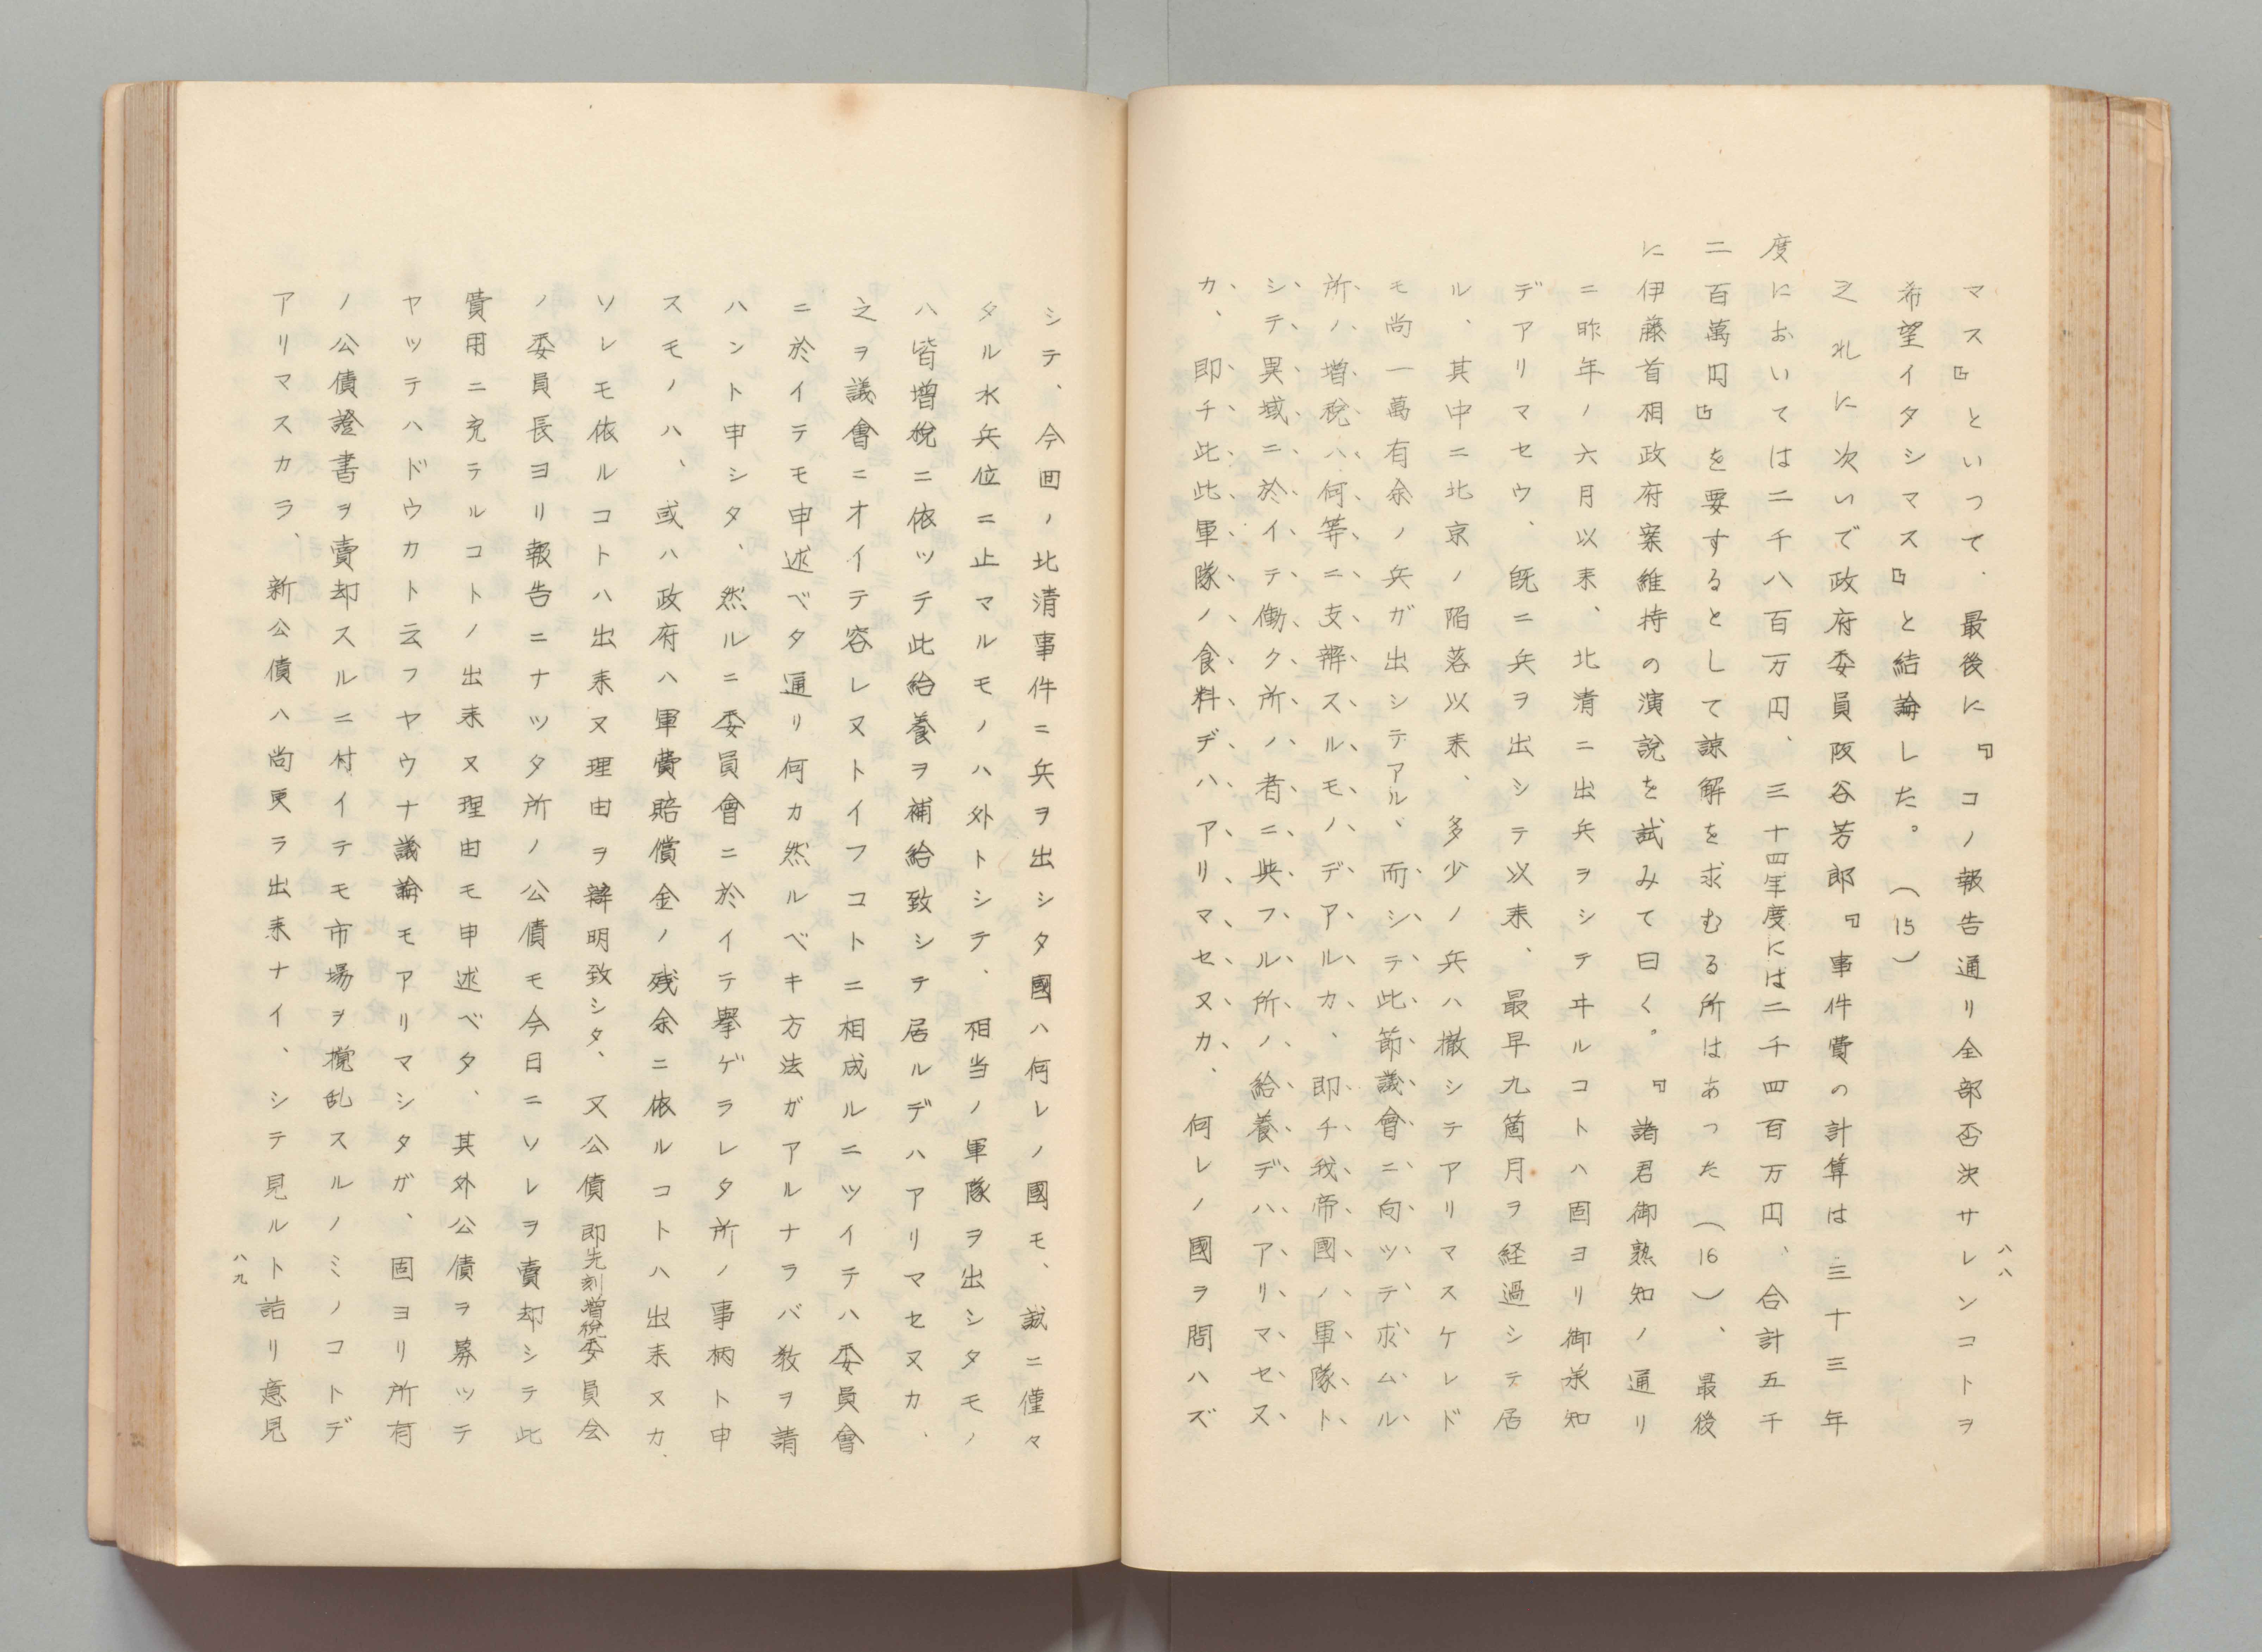 マス』といって、最後に『コノ報告通リ全部否決サレンコトヲ
希望イタシマス』と結論した。（15）
之れに次いで政府委員阪谷芳郎『事件費の計算は三十三年
度においては二千八百万円、三十四年度には二千四百万円、合計五千
二百萬円』を要するとして諒解を求むる所はあった（16）、最後
に伊藤首相政府案維持の演説を試みて曰く。『諸君御熟知ノ通リ
ニ昨年ノ六月以来、北清ニ出兵ヲシテヰルコトハ固ヨリ御承知
デアリマセウ、既ニ兵ヲ出シテ以来、最早九箇月ヲ経過シテ居
ル、其中ニ北京ノ陥落以来、多少ノ兵ハ撤シテアリマスケレド
モ尚一萬有余ノ兵ガ出シテアル、而シテ此節議會ニ向ッテ求ムル
所ノ増税ハ何等ニ支辨スルモノデアルカ、即チ我帝國ノ軍隊ト
シテ異域ニ於イテ働ク所ノ者ニ與フル所ノ給養デハアリマセヌ
カ、即チ此此軍隊ノ食料デハアリマセヌカ、何レノ國ヲ問ハズ
八八
シテ、今回ノ北清事件ニ兵ヲ出シタ國ハ何レノ國モ、誠ニ僅々
タル水兵位ニ止マルモノハ外トシテ、相当ノ軍隊ヲ出シタモノ
ハ皆増税ニ依ッテ此給養ヲ補給致シテ居ルデハアリマセヌカ、
之ヲ議會ニオイテ容レヌトイフコトニ相成ルニツイテハ委員會
ニ於イテモ申述ベタ通リ何カ然ルベキ方法ガアルナラバ教ヲ請
ハント申シタ、然ルニ委員會ニ於イテ擧ゲラレタ所ノ事柄ト申
スモノハ、或ハ政府ハ軍費賠償金ノ残余ニ依ルコトハ出来ヌカ、
ソレモ依ルコトハ出来ヌ理由ヲ辯明致シタ、又公債即先刻増税委員会
ノ委員長ヨリ報告ニナツタ所ノ公債モ今日ニソレヲ賣却シテ此
費用ニ充テルコトノ出来ヌ理由モ申述ベタ、其外公債ヲ募ッテ
ヤッテハドウカト云フヤウナ議論モアリマシタガ、固ヨリ所有
ノ公債證書ヲ賣却スルニ付イテモ市場ヲ攪乱スルノミノコトデ
アリマスカラ、新公債ハ尚更ラ出来ナイ、シテ見ルト詰リ意見
八九